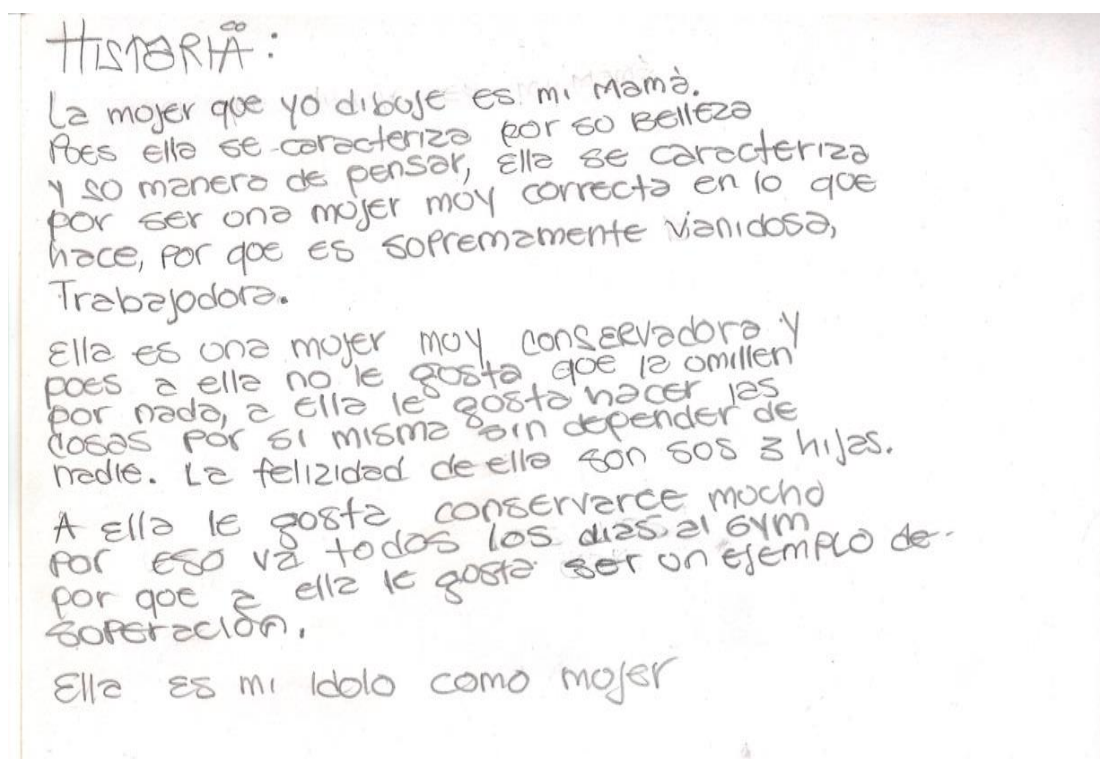 HISTORIA:
La mujer que yo dibuje es mi Mamá.
Pues ella se caracteriza por su Belleza
y su manera de pensar, Ella se caracteriza
por ser una mujer muy correcta en lo que
hace, por que es supremamente vianidosa,
Trabajodora.
Ella es una mujer muy conservadora y
pues a ella no le gusta que la omillen
por nada, a Ella le gusta hacer las
cosas por si misma sin depender de
nadie. La felizidad de ella son sus 3 hijas.
A Ella le gusta conservarce mucho
por eso va todos los dias al Gym
por que a ella le gusta ser un ejemplo de-
superación.
Ella es mi Idolo como mujer